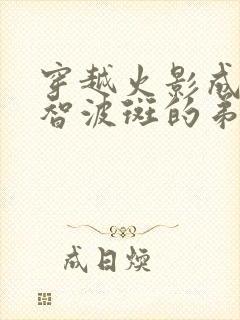 穿越火影成
智波斑的弟
成日煥